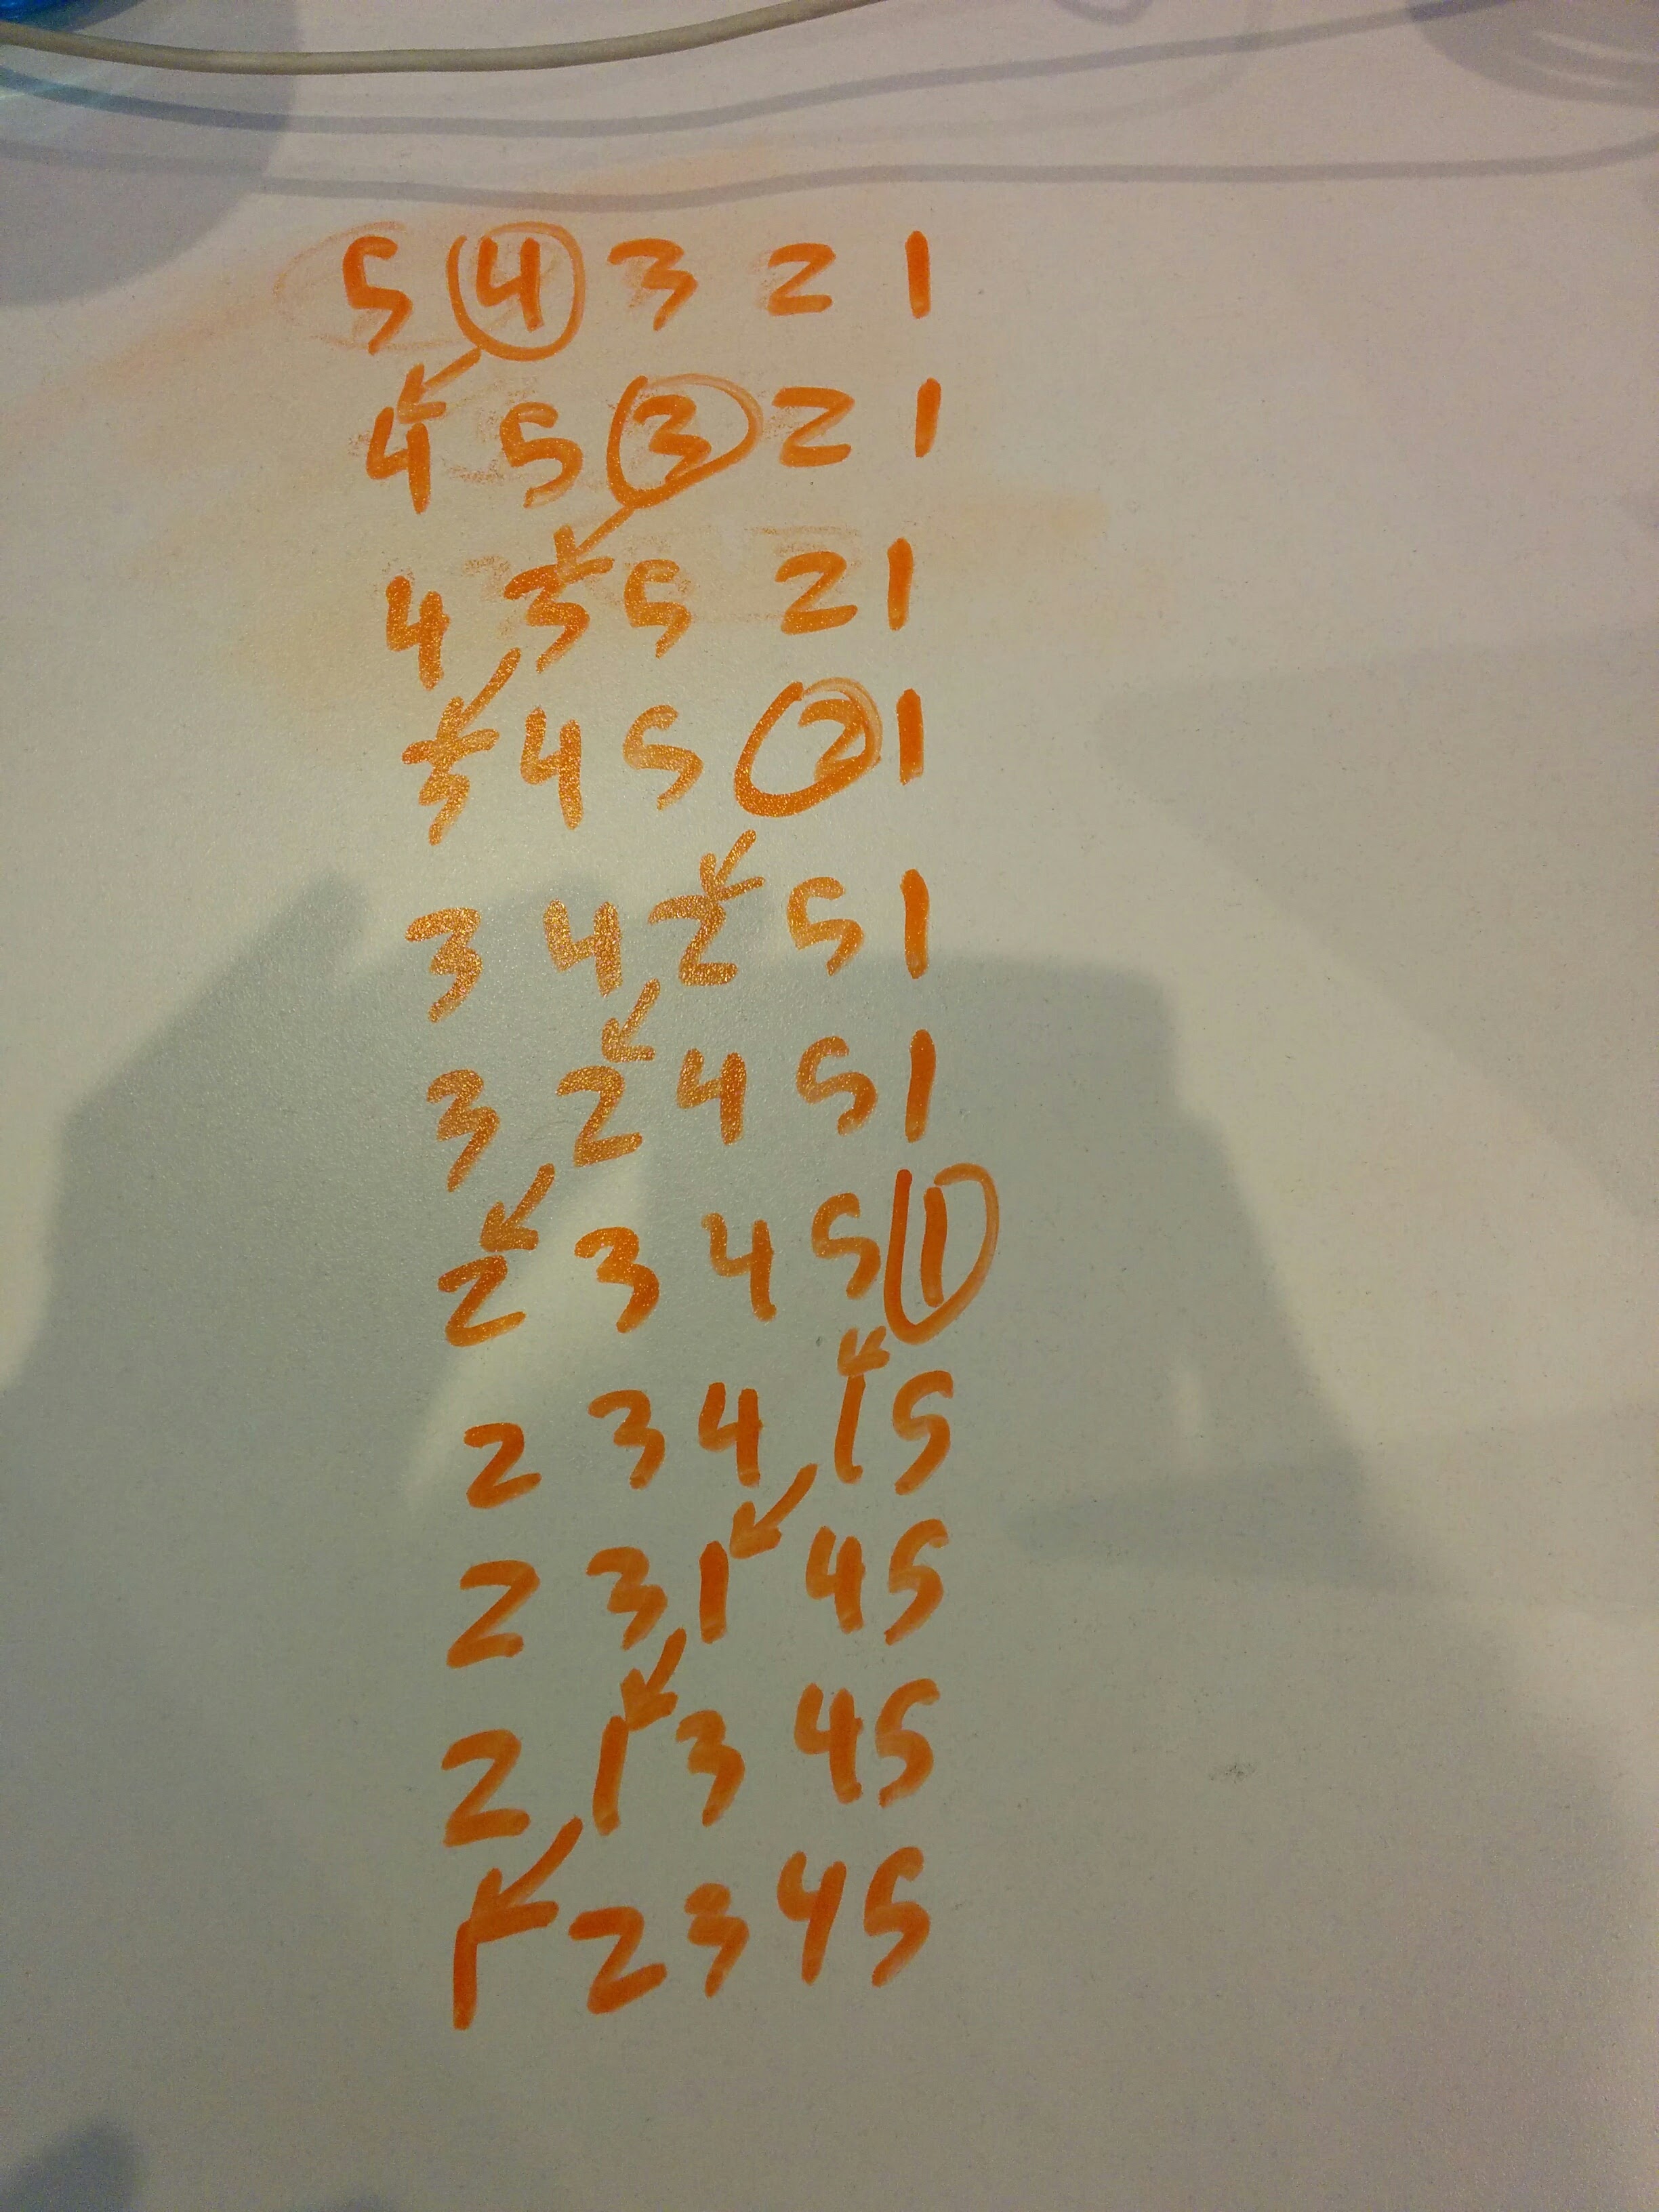 5 4 3 2 1
4 5 3 2 1
4 3 5 2 1
3 4 5 2 1
3 4 2 5 1
3 2 4 5 1
2 3 4 5 1
2 3 4 1 5
2 3 1 4 5
2 1 3 4 5
1 2 3 4 5